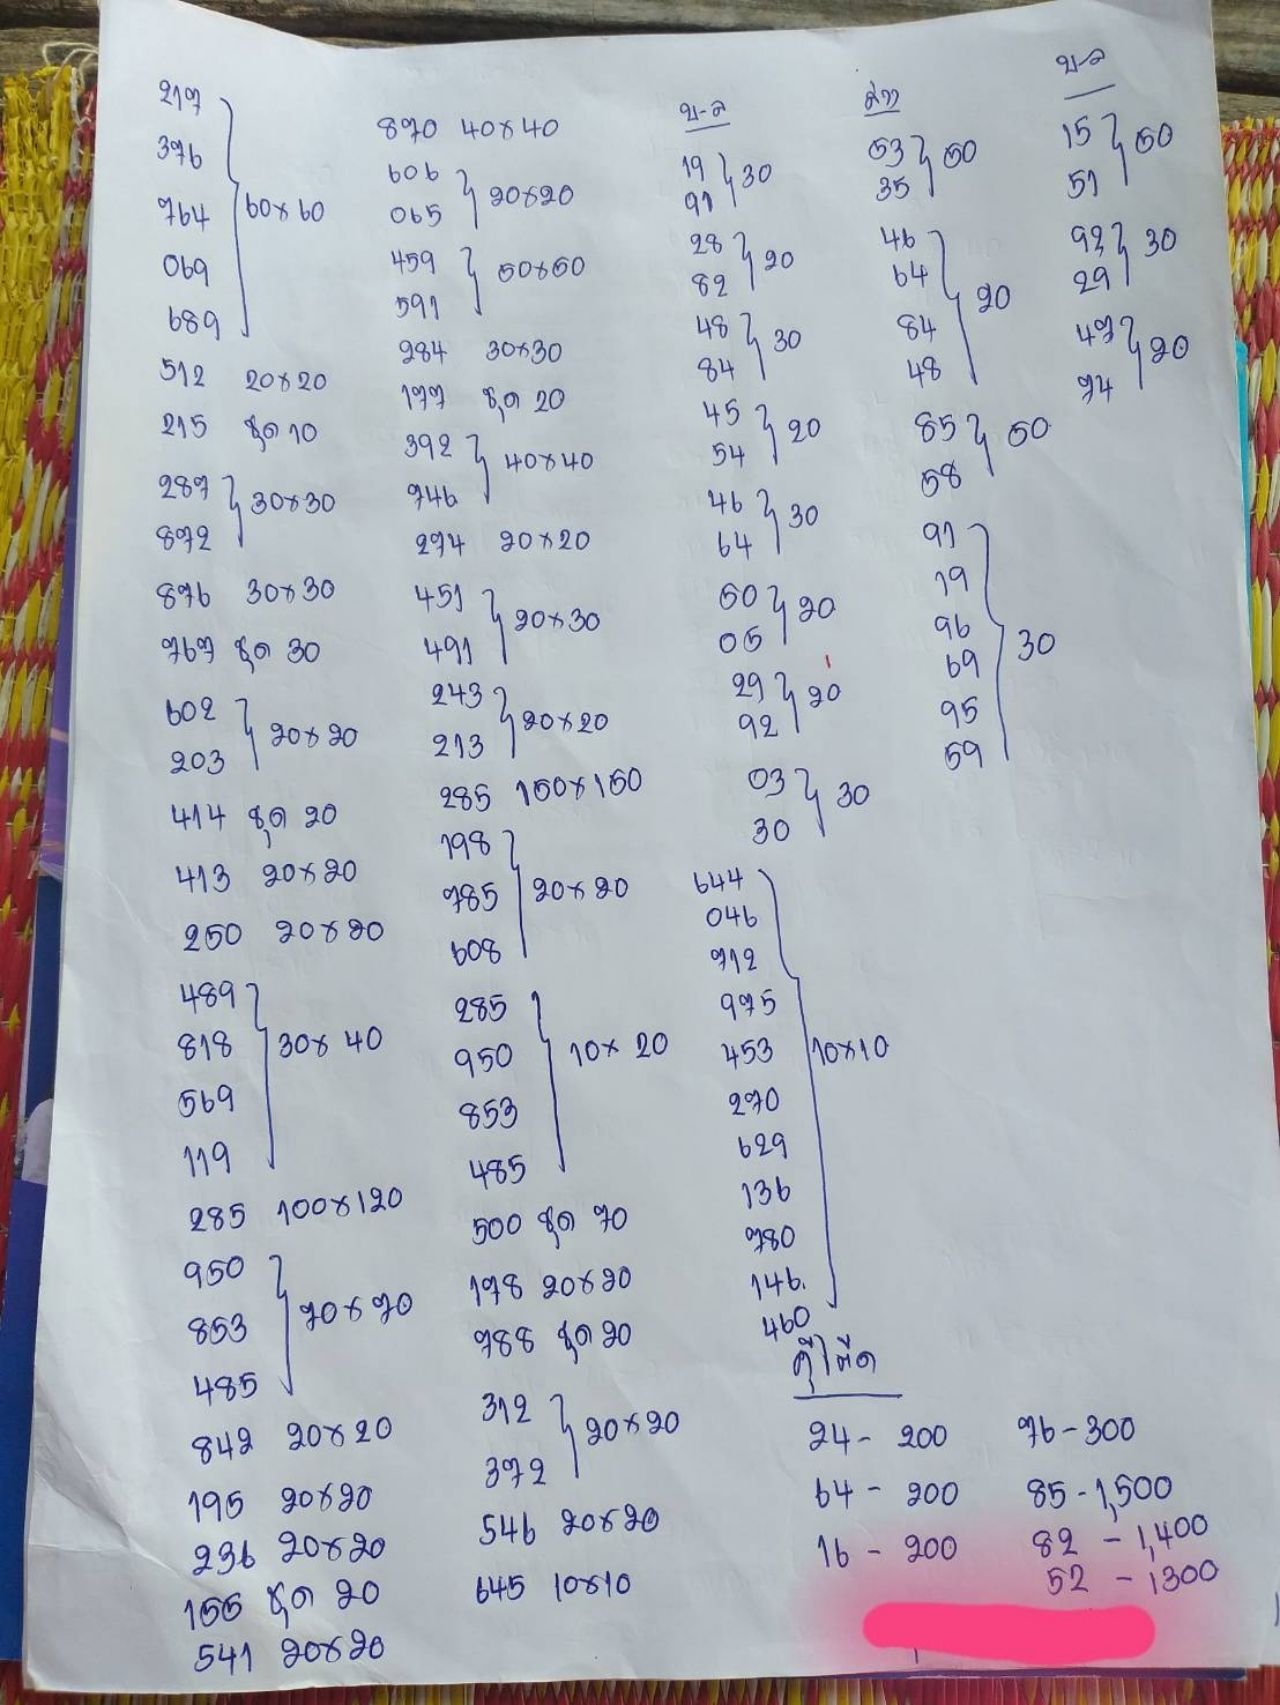 217
376
764
069
689
60x60
512 20x20
215 ชุด 10
287
872
30x30
876 30x30
767 ชุด 30
602
203
20x20
414 ชุด 20
413 20x20
250 20x20
489
818
569
119
30x40
285 100x120
950
853
485
70x70
842 20x20
195 20x20
236 20x20
155 ชุด 20
541 20x20
870 40x40
606
065
20x20
459
591
50x50
284 30x30
177 ชุด 20
392
746
40x40
274 20x20
451
491
20x30
243
213
20x20
285 150x150
198
785
608
20x20
285
950
853
485
10x20
500 ชุด 70
178 20x20
788 ชุด 20
312
372
20x20
546 20x20
645 10x10
บ-ล
19
91
30
28
82
20
48
84
30
45
54
20
46
64
30
50
05
20
29
92
20
03
30
30
644
046
712
975
453
270
629
136
780
146.
460
10x10
ล่าง
53
35
50
46
64
84
48
20
85
58
50
91
19
96
69
95
59
30
บ-ล
15
51
50
92
29
30
47
74
20
24 - 200
64 - 200
16 - 200
76 - 300
85 - 1,500
82 - 1,400
52 - 1300